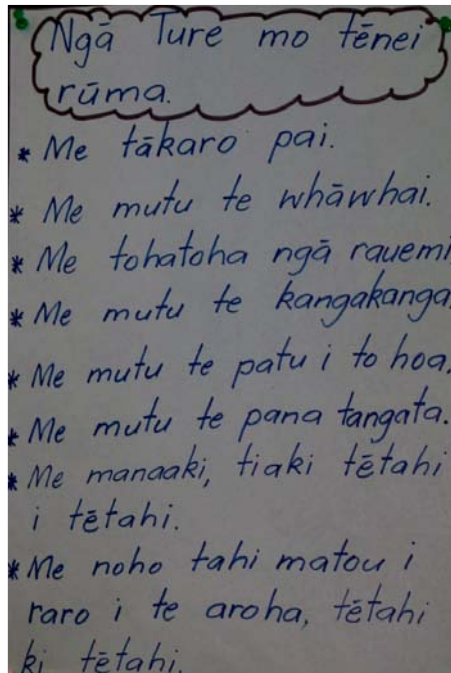 Ngā Ture mo tēnei
rūma.
* Me tākaro pai.
* Me mutu te whāwhai.
* Me tohatoha ngā rauemi
* Me mutu te kangakanga.
* Me mutu te patu i to hoa.
* Me mutu te pana tangata.
* Me manaaki, tiaki tētahi
i tētahi.
* Me noho tahi matou i
raro i te aroha, tētahi
ki tētahi.